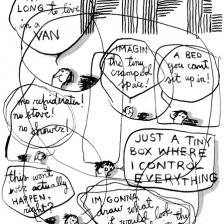 LONG to live
in a
VAN
IMAGINE
the tiny
cramped
space!
A BED
you can't
sit up in!
no refrigerator!
no stove!
no shower!
JUST A TINY
BOX WHERE
I CONTROL
EVERYTHING
this won't
ever actually
HAPPEN,
right?
IM GONNA
draw what
it would look like